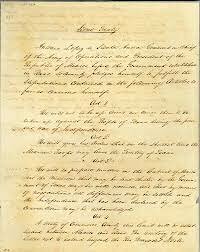 Secret Treaty
Antonio Lopez de Santa Anna General in Chief
of the Army of Operations and President of the
Republic of Mexico before the Government established
in Texas solemnly pledges himself to fulfill the
Stipulations contained in the following Articles so
far as concerns himself
Art 1
He will not take up Arms nor cause them to be
taken up against the People of Texas during the present
war of Independence
Art 2
He will give his Orders that in the shortest time the
Mexican Troops may leave the Territory of Texas
Art 3
He will so prepare matters in the Cabinet of Mexico
that the Mission that may be sent thither by the Govern
ment of Texas may be well received, and that by means
of negotiations all differences may be settled and
the Independence that has been declared by the
Convention may be acknowledged
Art 4
A treaty of Commerce